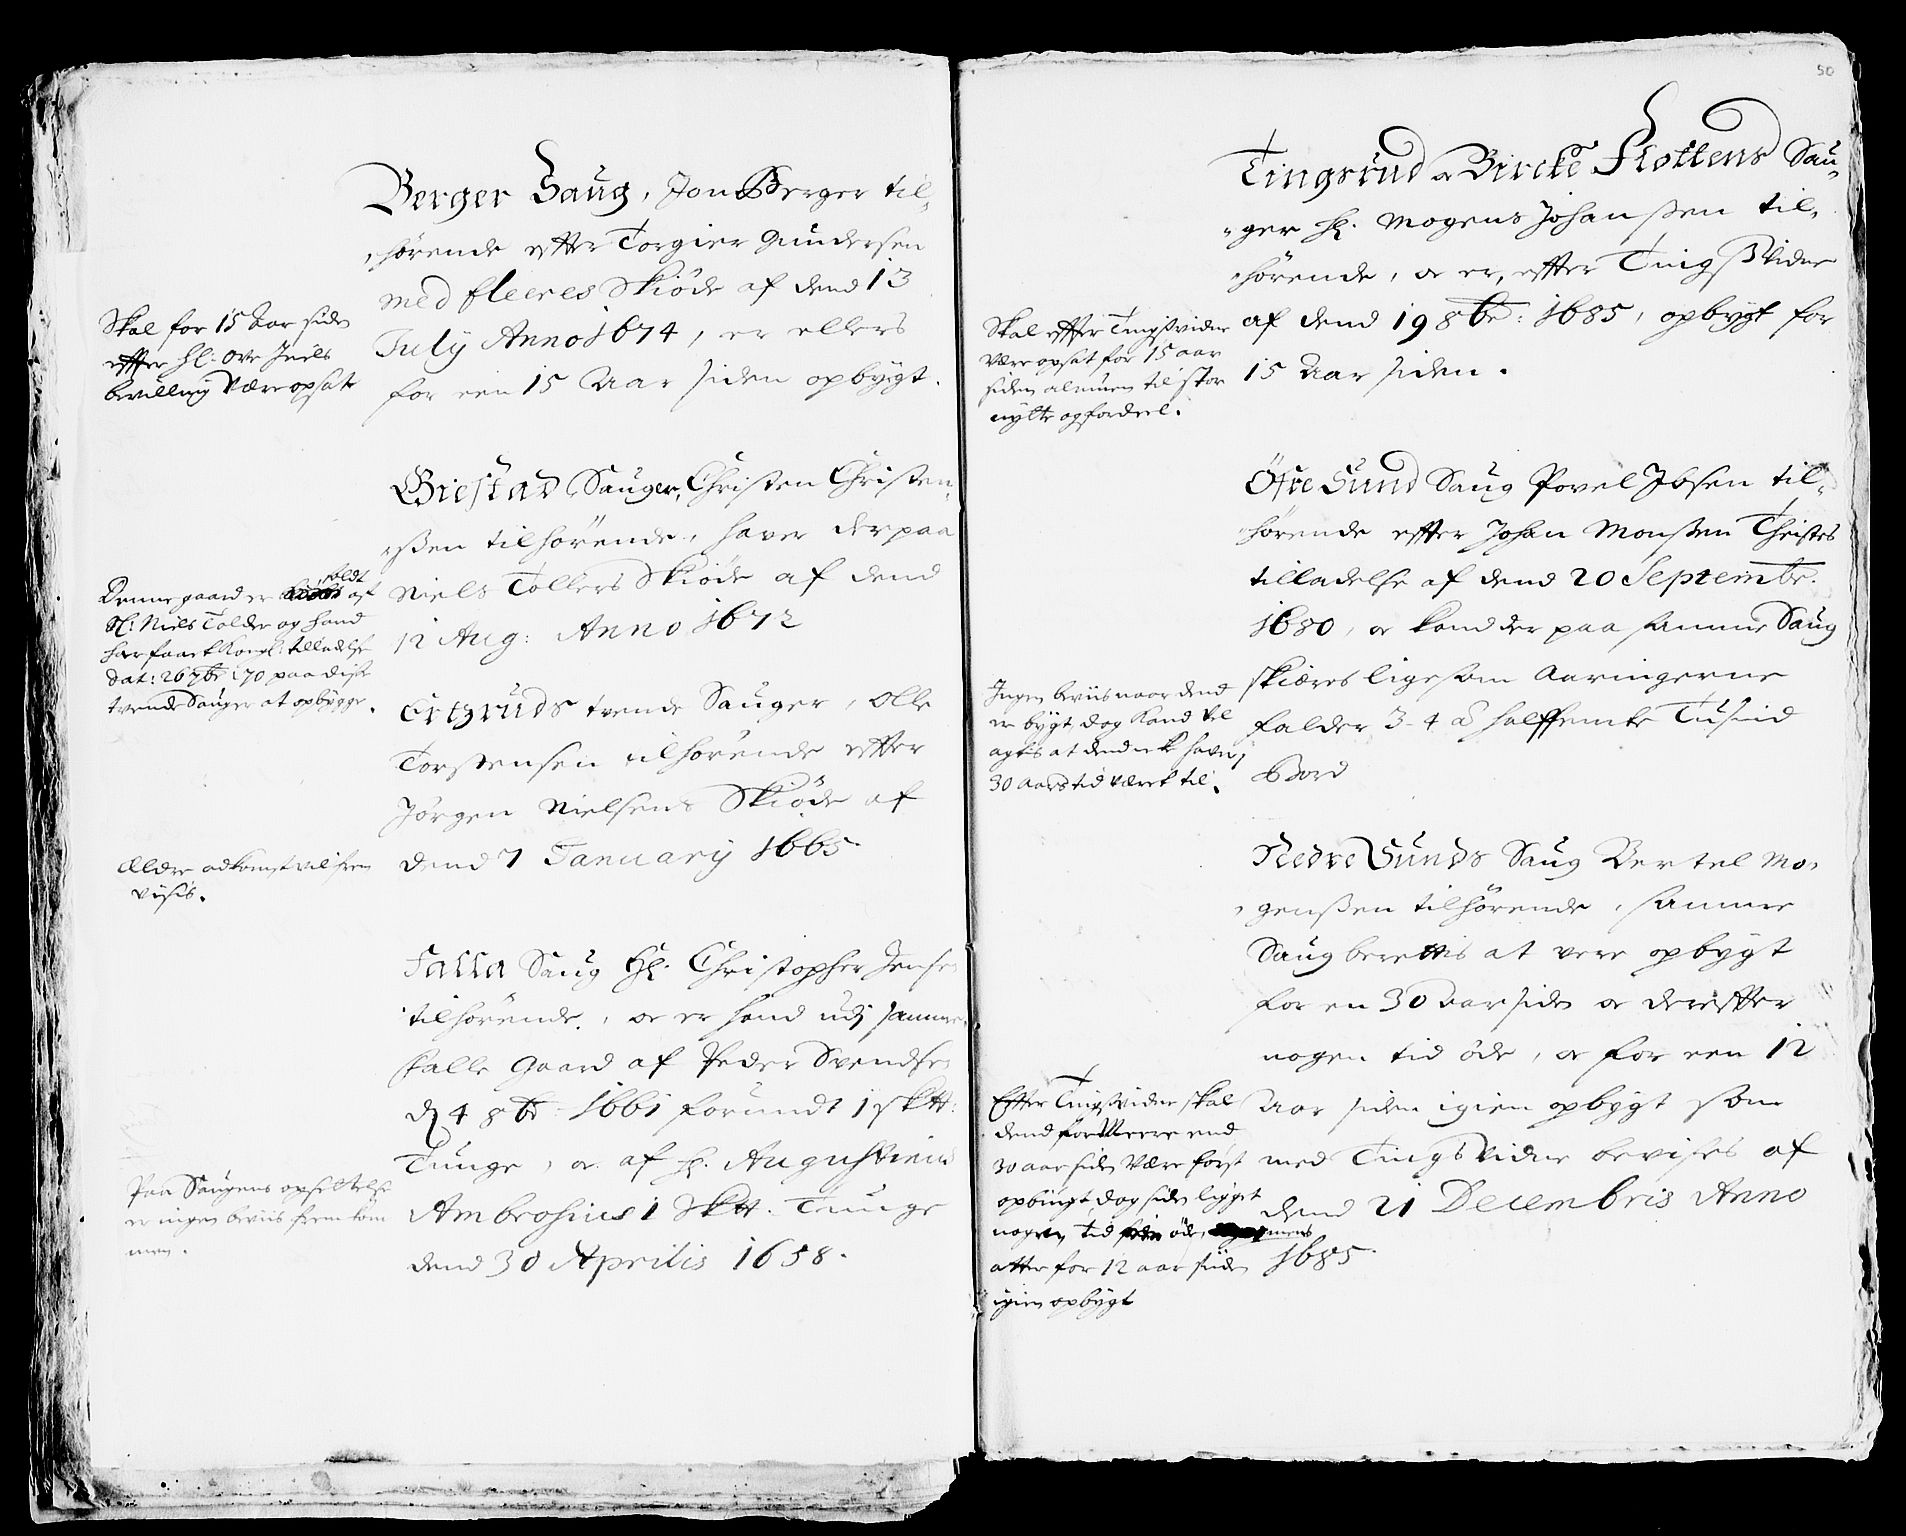 Berger Saug, Jon Berger til,
hørende efter Torgier Gundersen
med fleeres Skiøde af dend 13
July Anno 1674, er ellers
for een 15 Aar siden opbygt.
Skal for 15 Aar siden
effter Hl: Ove Juels
bevilling være opsatt
Giestad Sauger, Christen Christen,
ßen tilhørende, haver der paa
Niels Tollers Skiøde af dend
12 Aug: Anno 1672
Denne gaard er soldt af
Sl: Niels Tolder og hand
har faaet Kongl: tilladelse
Dat: 26 7br 1670 paa disse
tvende Sauger at opbygge.
Ertzruds tvende Sauger, Olle
Torstensen tilhørende effter
Jørgen Nielsens Skiøde af
dend 7 January 1665.
Ældre adkomst vil frem
vises.
Falla Saug Hl. Christopher Jense
tilhørende, oc er hand udj samme
Falle Gaard af Peder Svendse
d 4 8br: 1661 forundt 1 sktt:
Tunge, oc af Hl. Augustinus
Ambrosius 1 Sktt. Tunge
dend 30 Aprilis 1658.
Paa Saugens opsettelse
er ingen beviis frem kom
men.
50
Tingsrud oc Bircke Flottens Sau,
ger Hl. Mogens Johanßen til,
hørende, oc er, effter Tingßvidne
af dend 19 8br: 1685, opbygt for
15 Aar siden.
Skal effter Tingßvidne
være opsat for 15 aar
siden almuen til stor
nytte og fordeel.
Öfre Sund Saug Povel Jbsen til,
hørende effter Johan Monßen Thristes
tilladelse af dend 20 Septembr.
1680, oc kand der paa samme Saug
skiæres ligesom Aaringerne
falder 3-4 a halffemte Tusind
Bord
Ingen beviis naar dend
er bygt, dog kand vel
agtes at dend icke haver
30 aars tid været til.
Nedre Sunds Saug Bertel Mo,
genßen tilhørende, samme
Saug berettis at vere opbygt
for en 30 aar siden oc dereffter
nogen tid øde, oc for een 12
Aar siden igien opbygt som
med Tingsvidne bevises af
dend 21 Decembris Anno
1685.
Effter Tingßvidne skal
dend for meere end
30 aar siden være først
opbiugt, dog siden ligget
nogen tid øde,
atter for 12 aar siiden
igien opbygt